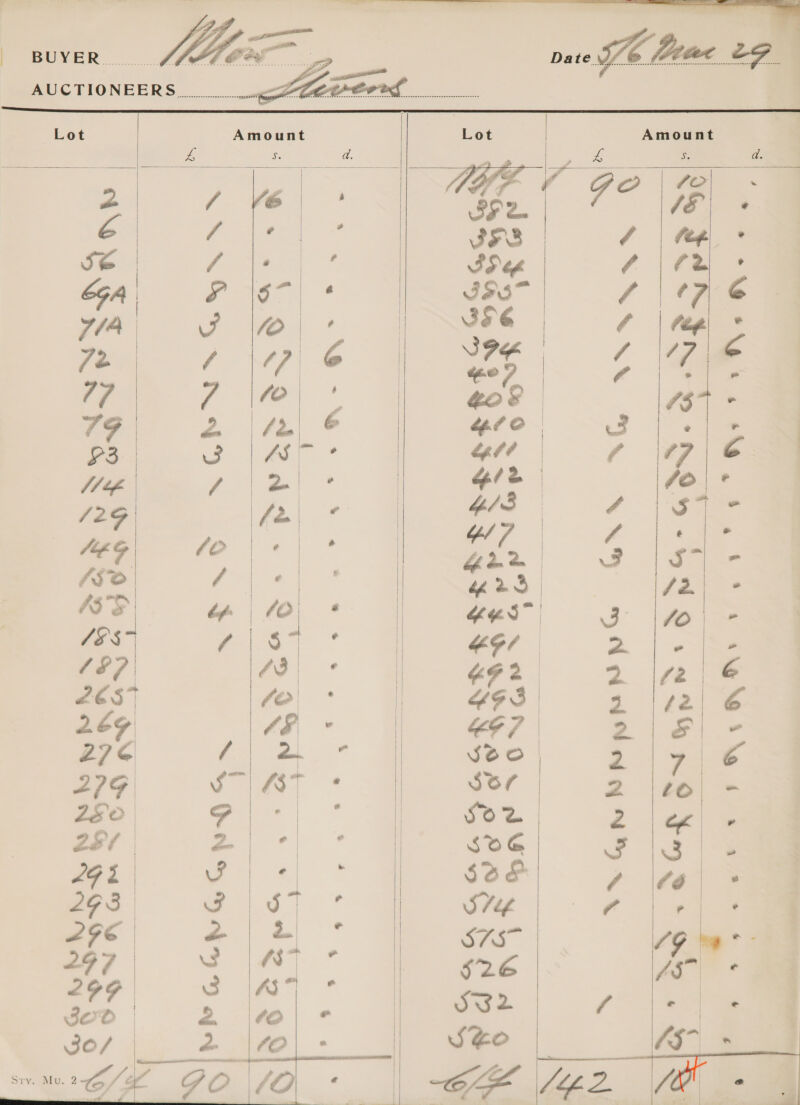 BUYER Date 5/6 Mar 29
AUCTIONEERS Stevens
Lot Amount
£ s. d.
2 1 16 .
6 1 . .
56 1 . .
69A 8 5 .
71A 3 10 .
72 1 17 6
77 7 10 .
79 2 12 6
83 3 15 .
114 1 2 .
129 12 .
149 10 . .
150 1 . .
158 4 10 .
185 1 5 .
187 13 .
265 10 .
269 18 .
276 1 2 .
279 5 15 .
280 9 . .
281 2 . .
292 3 . .
293 3 5 .
296 2 2 .
297 3 15 .
299 3 15 .
300 2 10 .
301 2 10 .
Srv. Mu. 2 C/F 90 10 .
Lot Amount
£ s. d.
B/F 90 10 .
382 18 .
383 1 14 .
384 1 12 .
385 1 17 6
386 1 14 .
394 1 17 6
407 1 . .
408 15 .
410 3 . .
411 1 17 6
412 10 .
413 1 5 .
417 1 . .
422 3 5 .
423 12 .
445 3 10 .
491 2 . .
492 2 12 6
493 2 12 6
497 2 8 .
500 2 7 6
501 2 10 .
502 2 4 .
506 3 3 .
508 1 10 .
514 1 . .
515 19 .
526 15 .
532 1 . .
540 15 .
C/F 142 10 .